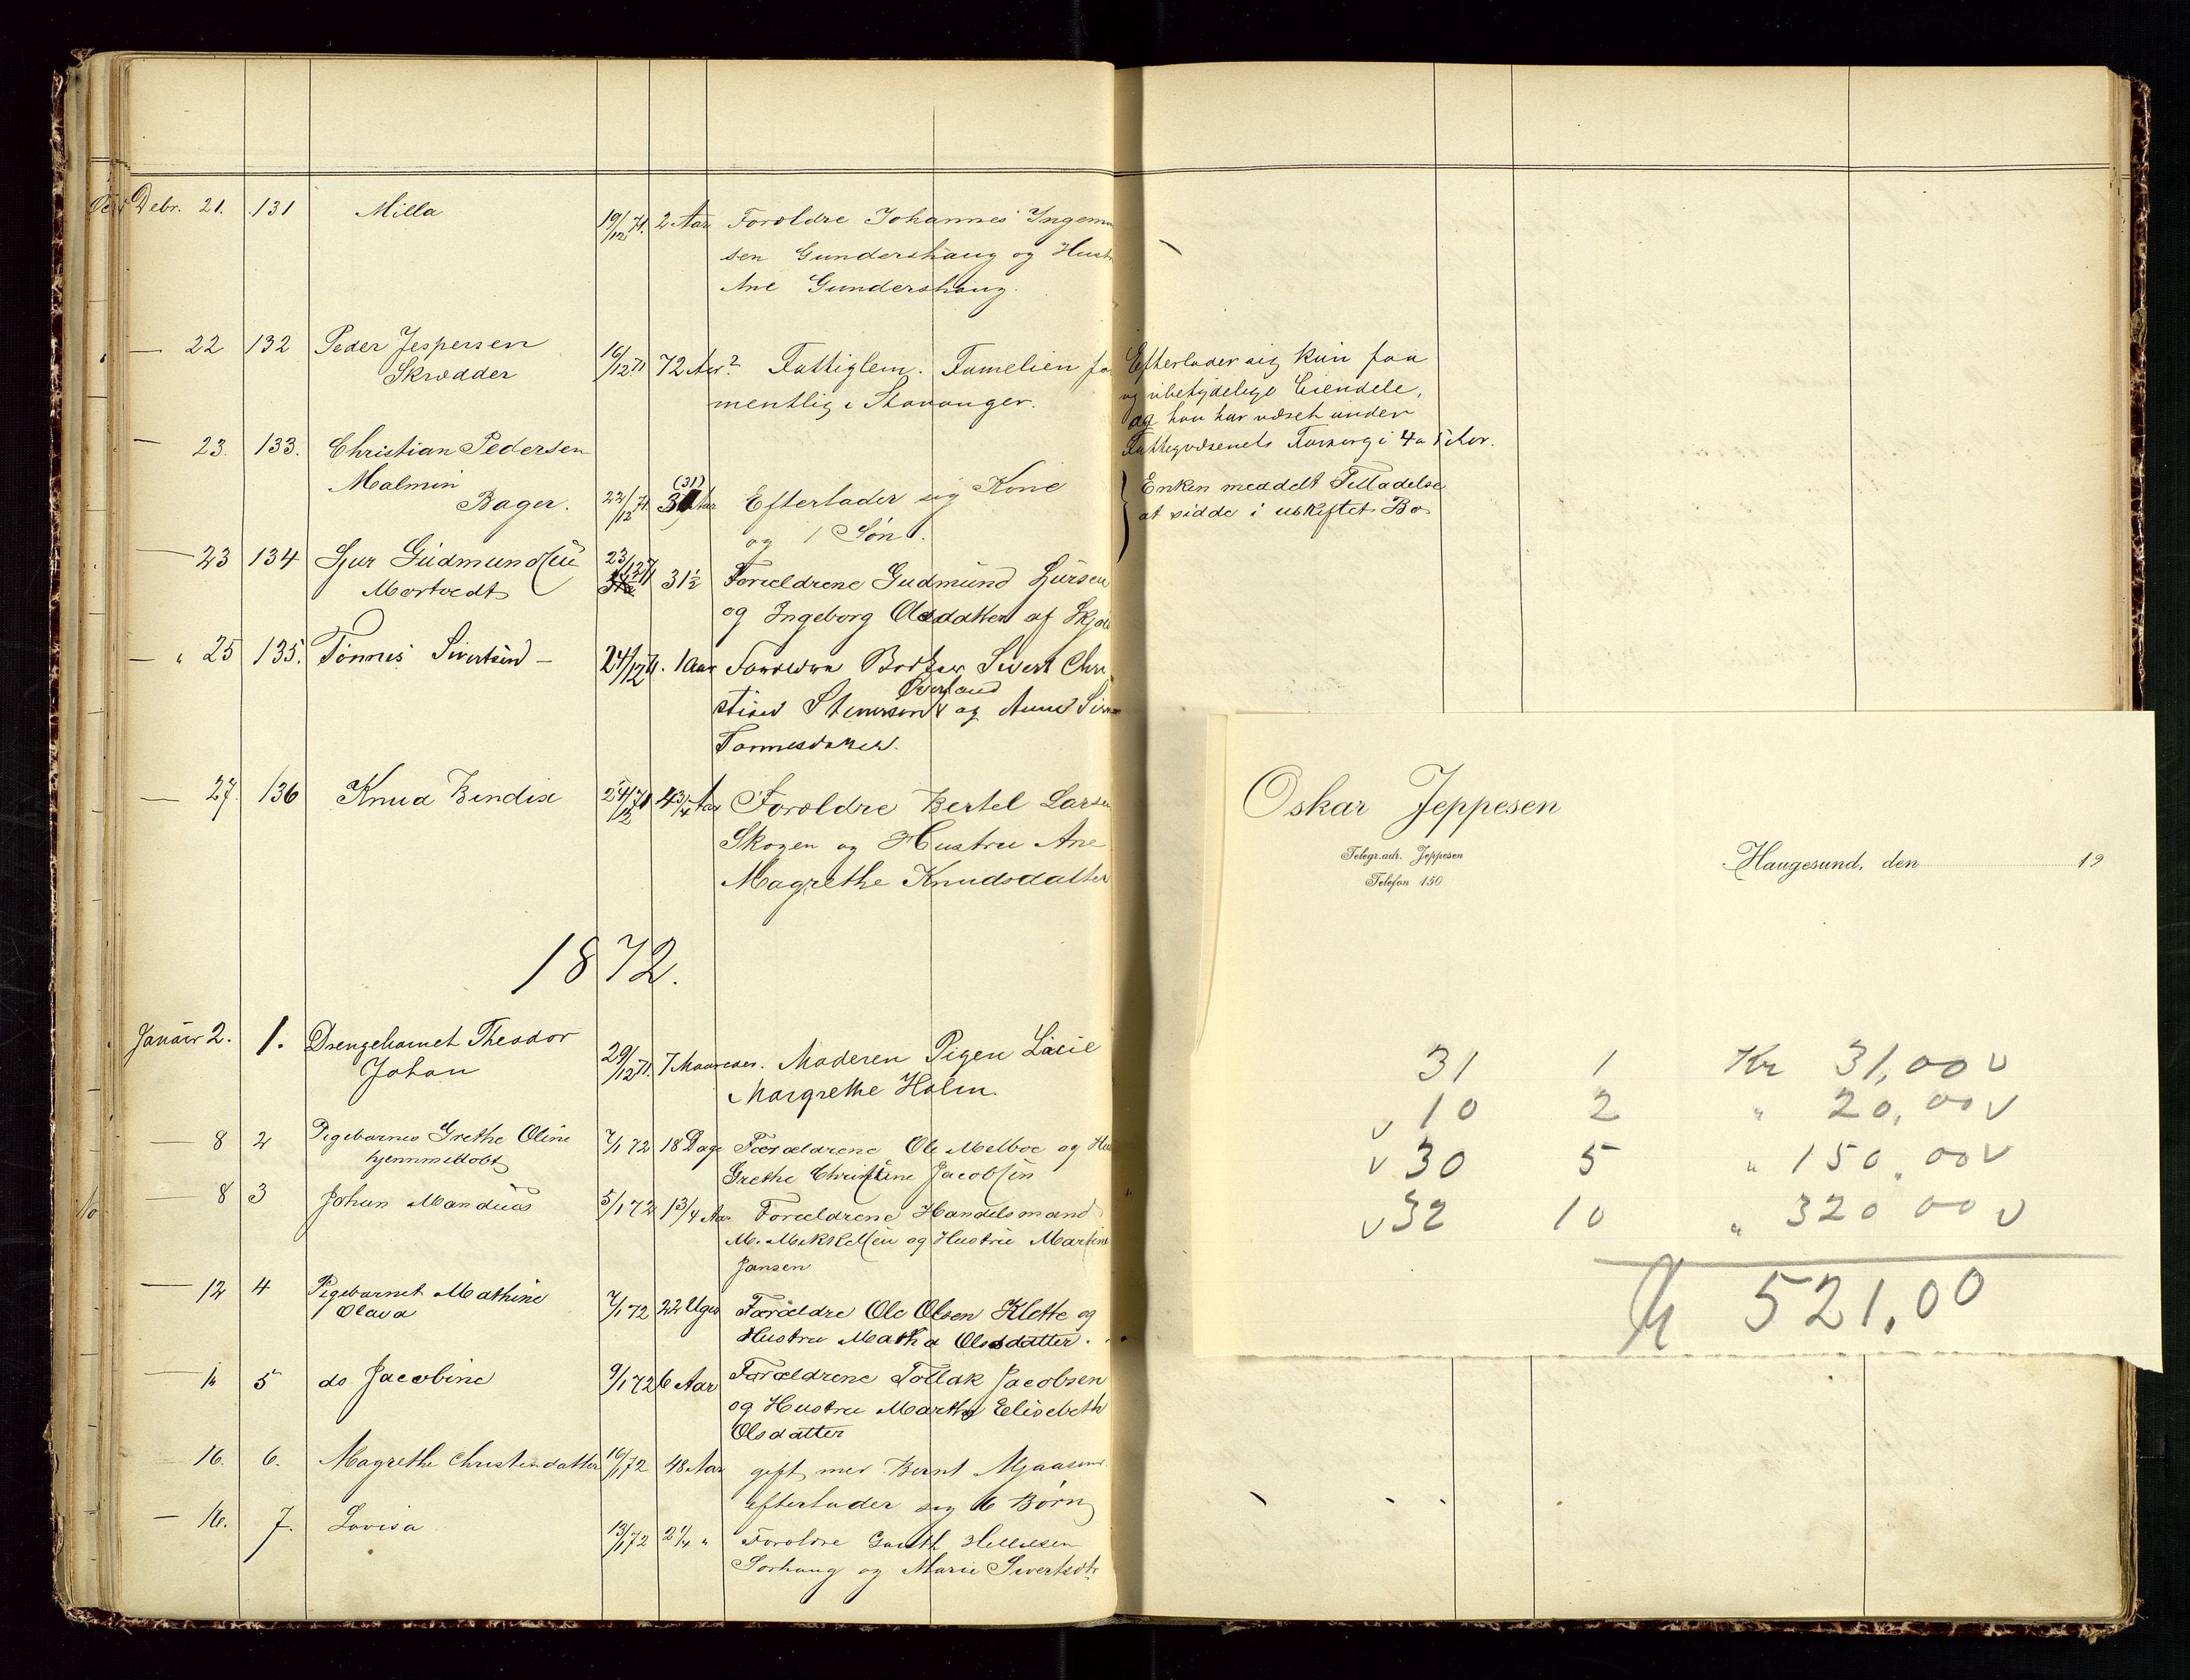 Debr. 21. 131 Milla 19/12 71. 2 Aar Foroldre Johannes Ingem
sen Gundershaug og Hust
Ane Gundershaug.
— 22 132 Peder Jespersen 16/12 71 72 Aar? Fattiglem. Familien fo
Skrædder
mentlig i Stavanger.
Efterlader sig kun faa
og ubetydelige Eiendele,
og han har været under
Fattigvæsenets Forsorg i 4 a 5 Aar.
— 23. 133. Christian Pedersen
Malmin
Bager. 22/12 71. (31) Aar Efterlader sig Kone
og 1 Søn.
Enken meddelt Tilladelse
at sidde i uskiftet Bo
— 23 134 Sjur Gudmundsen 23/12 71 31½ Forældrene Gudmund
Mortvedt
og Ingeborg Olsdatter af
— " 25 135. Tönnes Sivertsen — 24/12 71. 1 Aar Sivert Chri
stian og
Tönnesdatter.
— 27. 136 Knud Bendix 24/12 71 4 3/4 Aar Foroldre Bertel Larsen
Skogen og Hustru Ane
Magrethe Knudsdatter
1872.
Januar 2. 1. Drengebarnet Theodor 29/12 71. 7 Maaneder. Moderen Pigen
Johan
Margrethe Holm.
— 8 2 Pigebarnet Grethe Oline 7/1 72 18 Dage Forældrene Ole Melboe og Hu
hjemmedöbt
Grethe Christine Jacobsen
— 8 3 Johan Mandius 5/1 72 1 3/4 Aar Forældrene Handelsmand
M. Mikkelsen og Hustru Martine
Jansen
— 12 4 Pigebarnet Mathine 7/1 72 22 Uger Forældre Ole Olsen Klette og
Olava
Hustru Olsdatter.
— 5 do Jacobine 9/1 72 6 Aar Forældrene Tollak Jacobsen
og Hustru Martha Elisebeth
Olsdatter
— 16. 6. Magrethe Christensdatter 10/1 72 48 Aar gift med Bernt
efterlader sig 6 Börn
— 16. 7. Lovisa 13/1 72 2 1/4 " Foroldre
Sörhaug og Marie Sivertsdtr
Oskar Jeppesen
Telegr.adr. Jeppesen
Telefon 150
Haugesund, den 19
31 1 Kr 31,00 v
v 10 2 " 20,00 v
v 30 5 " 150,00 v
v 32 10 " 320 00 v
Kr 521,00